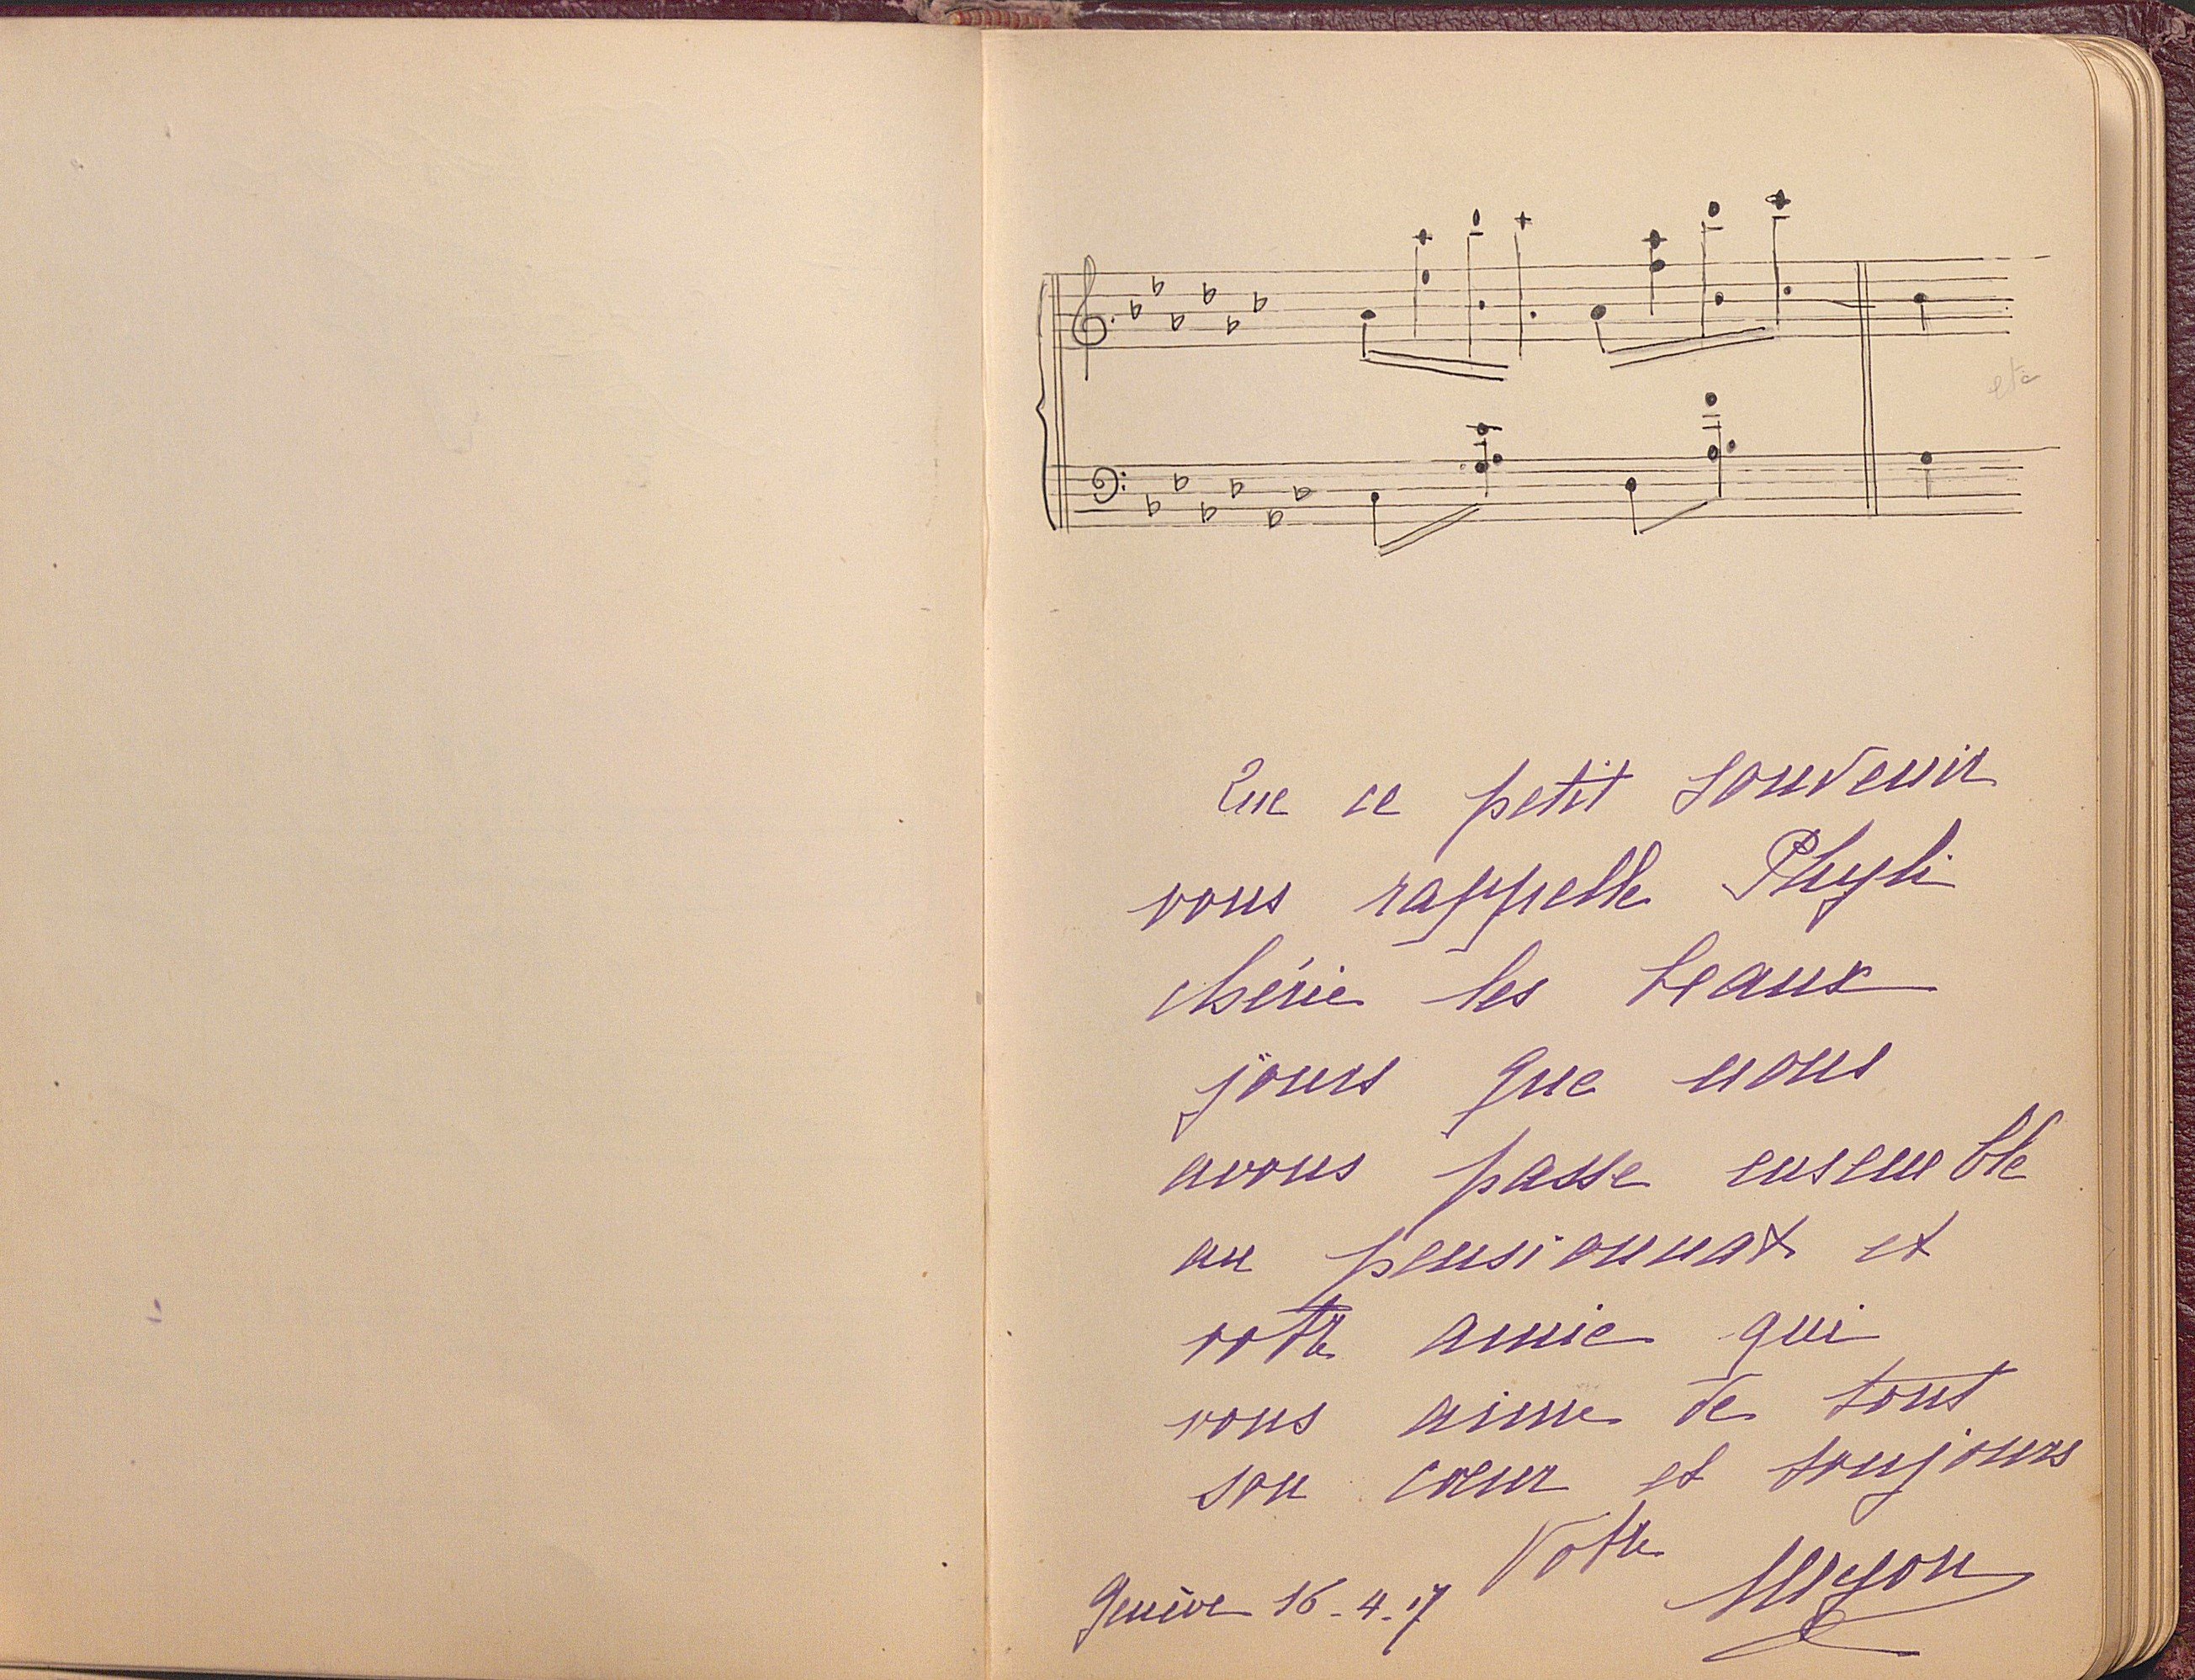 etc
Que ce petit souvenir
vous rappelle Phyli
chérie les beaux
jours que nous
avons passe ensemble
au pensionnat et
votre amie qui
vous aime de tout
son cœur et toujours
Votre
Genève 16-4-17